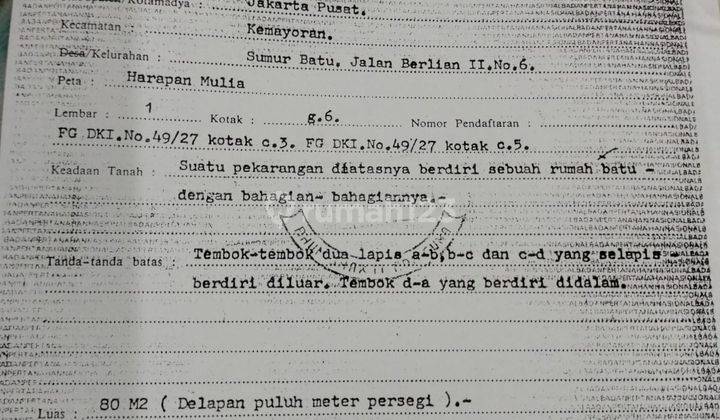 Kotamadya : Jakarta Pusat.
Kecamatan : Kemayoran.
Desa/Kelurahan : Sumur Batu. Jalan Berlian II.No.6.
Peta : Harapan Mulia
Lembar : 1 Kotak : g.6. Nomor Pendaftaran :
FG DKI.No.49/27 kotak c.3. FG DKI.No.49/27 kotak c.5.
Keadaan Tanah : Suatu pekarangan diatasnya berdiri sebuah rumah batu -
dengan bahagian- bahagiannya.-
rumah123
Tanda-tanda batas : Tembok-tembok dua lapis a-b,b-c dan c-d yang selapis -
berdiri diluar. Tembok d-a yang berdiri didalam.
Luas : 80 M2 ( Delapan puluh meter persegi ).-